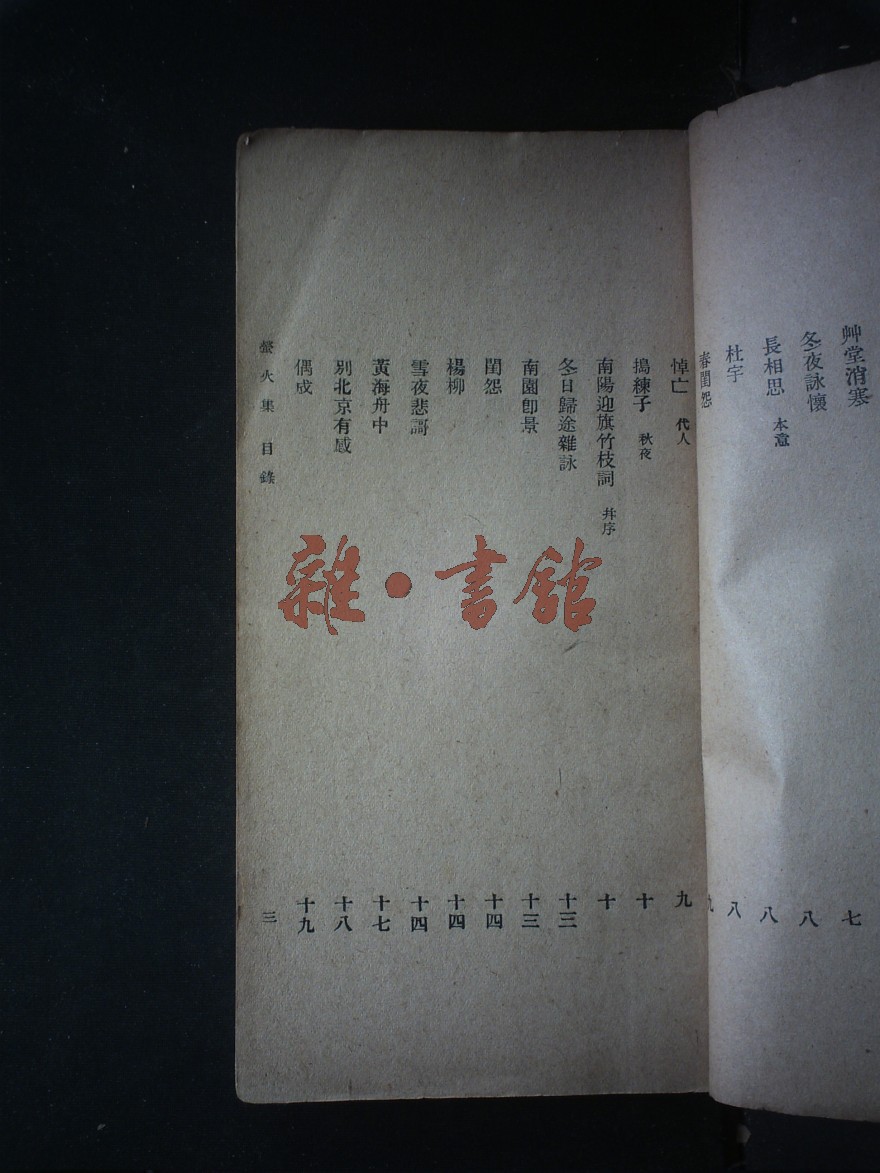 艸堂消寒 七
冬夜詠懷 八
長相思 本意 八
杜宇 八
春閨怨 九
悼亡 代人 九
搗練子 秋夜 十
南陽迎旗竹枝詞 幷序 十
冬日歸途雜詠 十三
南園卽景 十三
閨怨 十四
楊柳 十四
雪夜悲謌 十四
黃海舟中 十七
別北京有感 十八
偶成 十九
螢火集 目錄 三
雜·書館